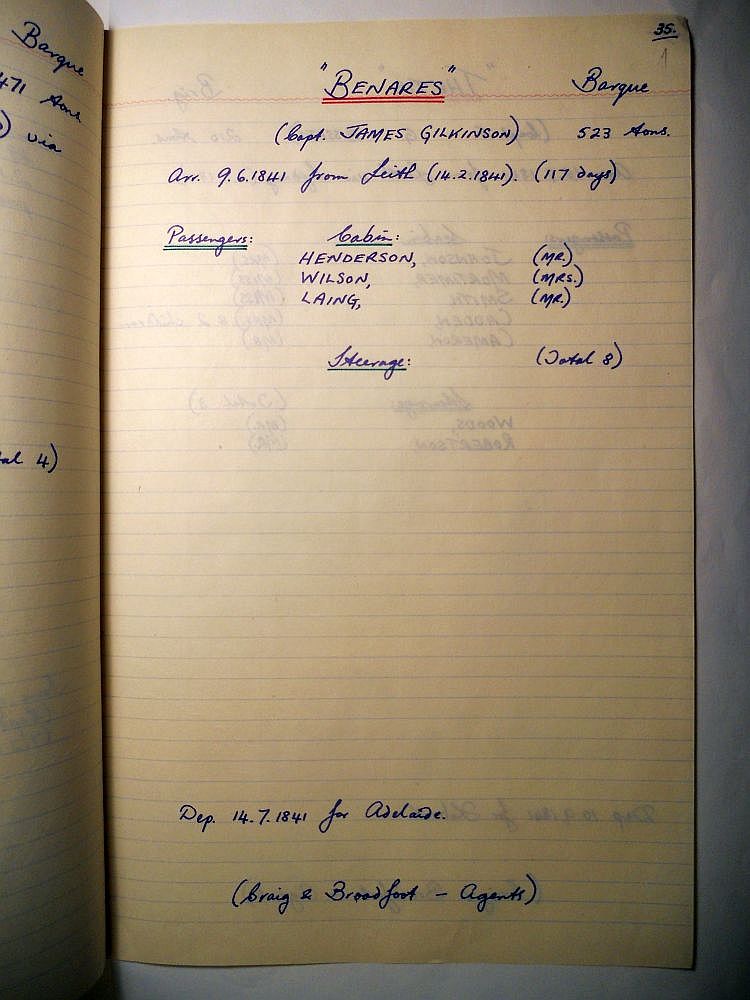 Barque
471 tons
) via
tal 4)
35.
"BENARES" Barque
(Capt. JAMES GILKINSON) 523 tons.
Arr. 9.6.1841 from Leith (14.2.1841). (117 days)
Passengers: Cabin:
HENDERSON, (MR.)
WILSON, (MRS.)
LAING, (MR.)
Steerage: (Total 8)
Dep. 14.7.1841 for Adelaide.
(Craig & Broadfoot - Agents)